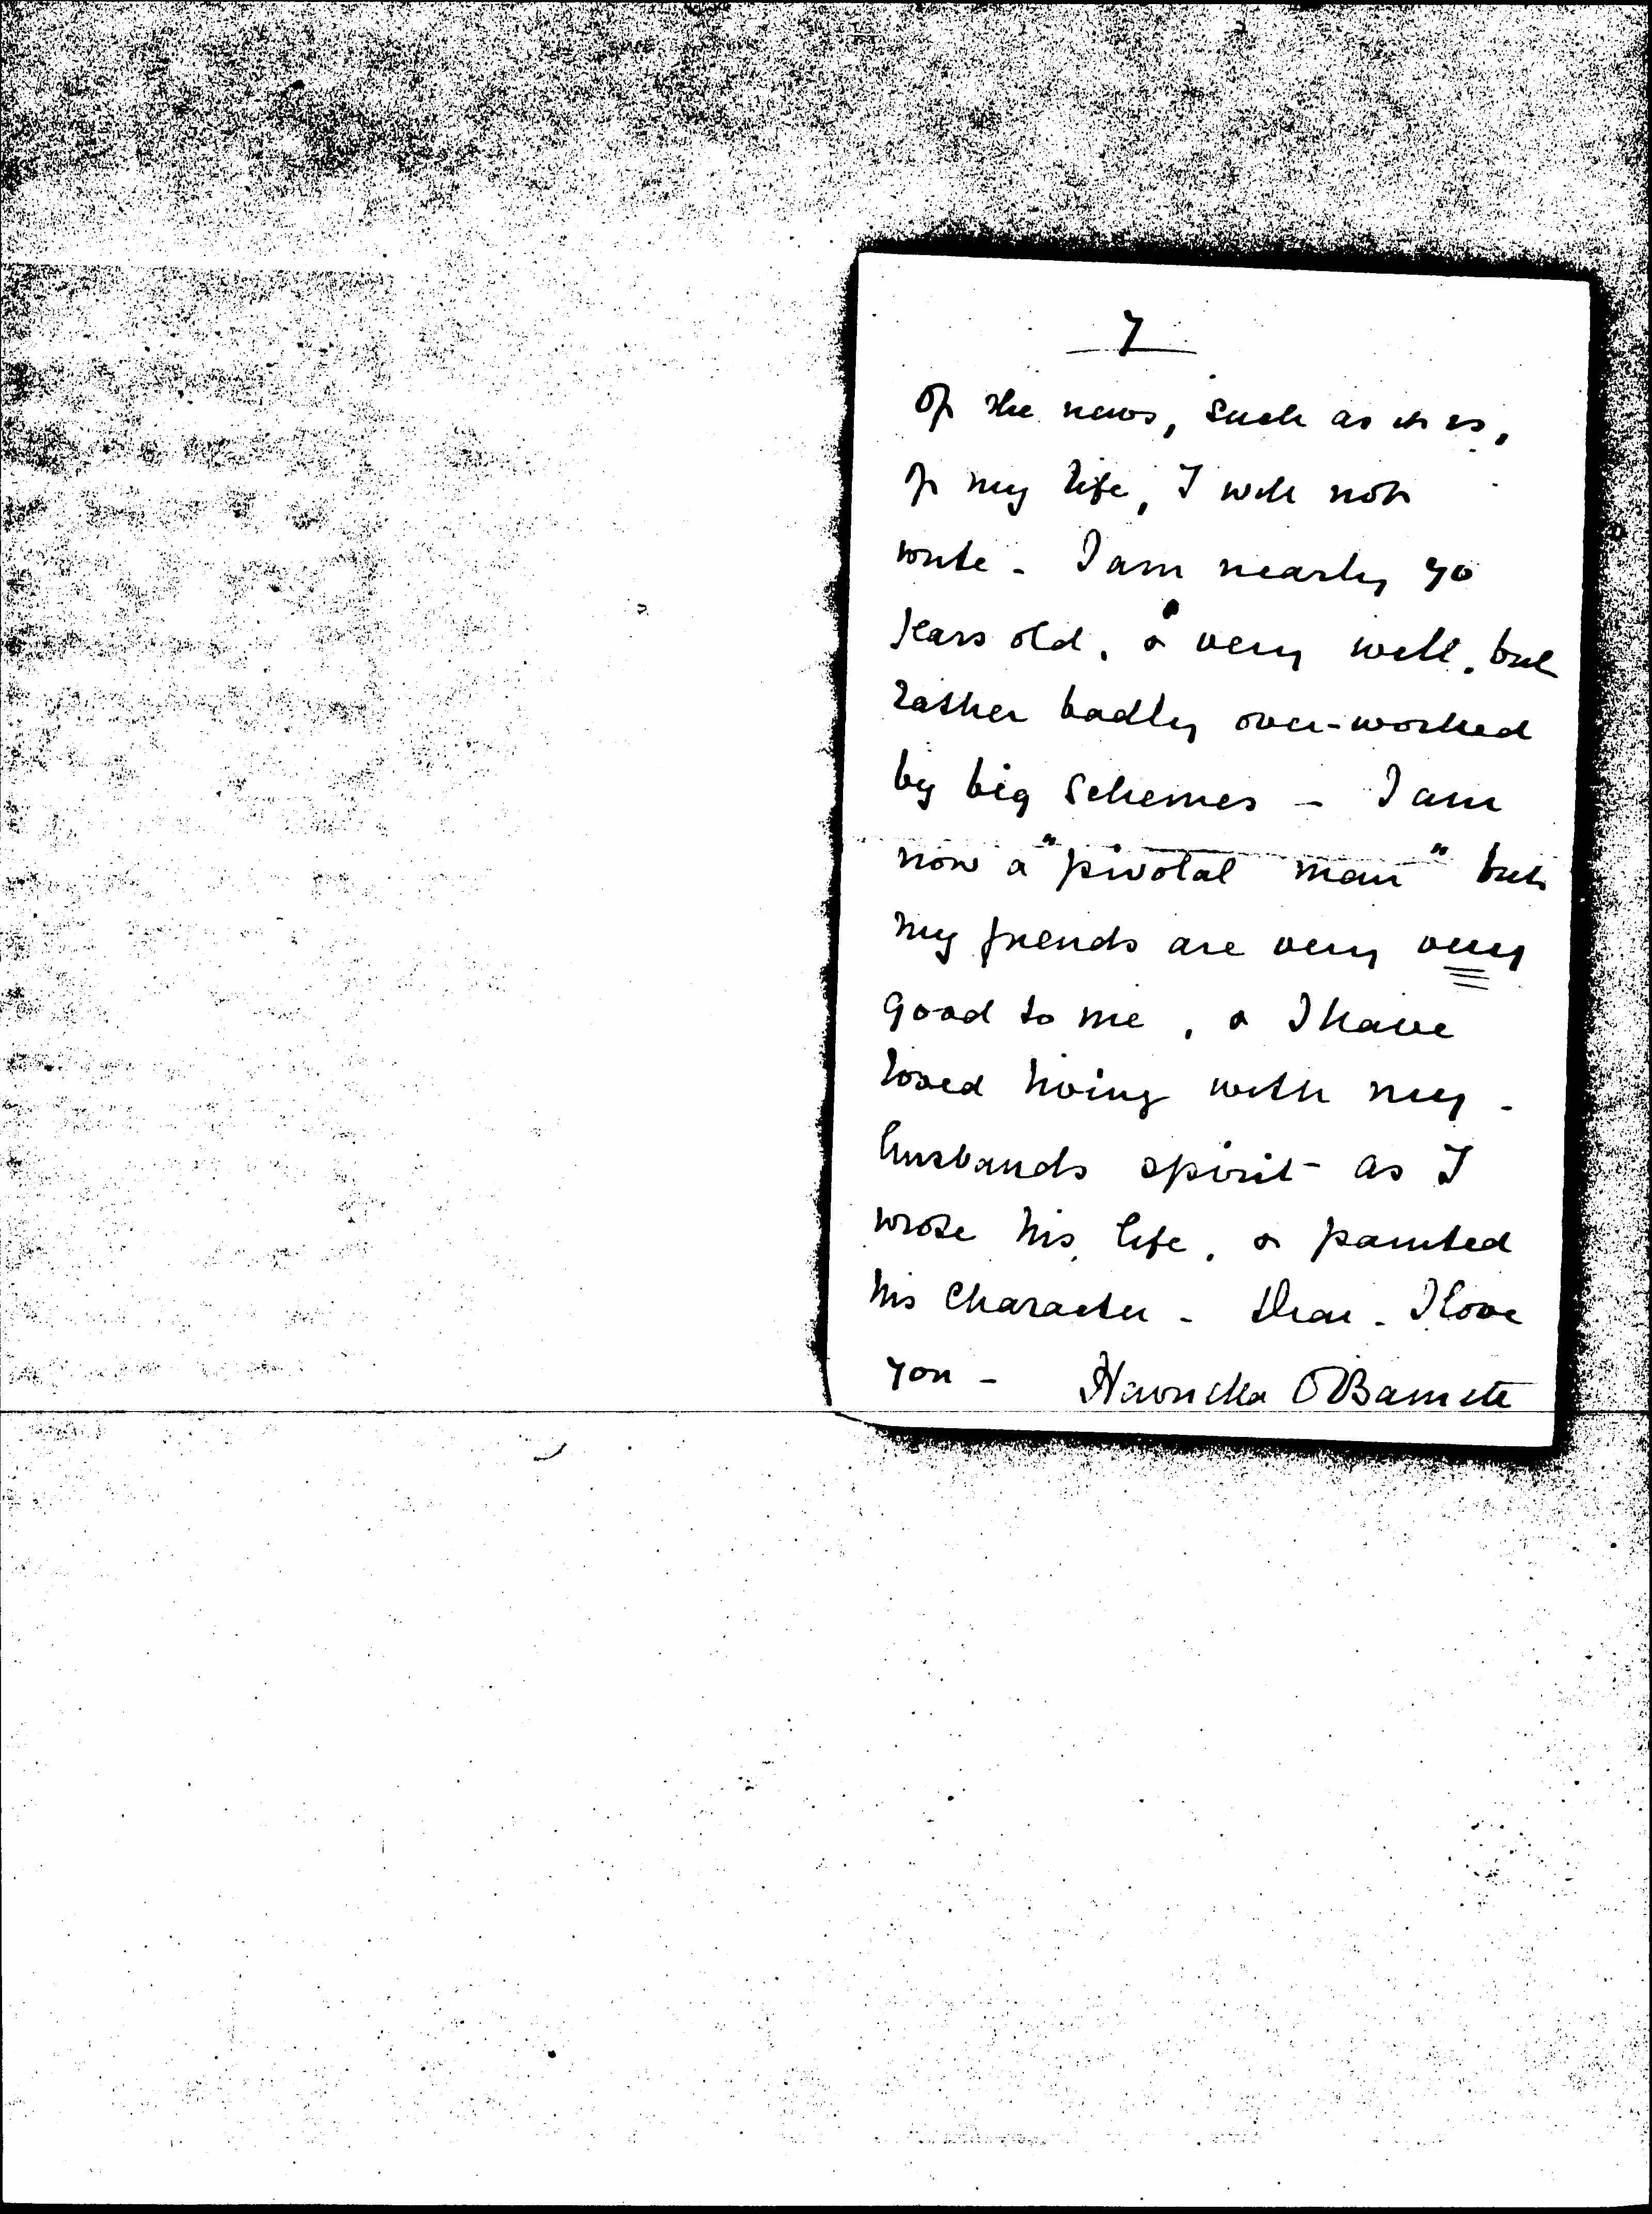 7
of the news, such as it is,
of my life, I will not
write - I am nearly 70
years old, & very well, but
rather badly over-worked
by big schemes - I am
now a "pivotal man" but
my friends are very very
good to me, & I have
loved living with my -
husbands spirit - as I
wrote his life, & painted
his character - Dear - I love
you - Henrietta O Barnett